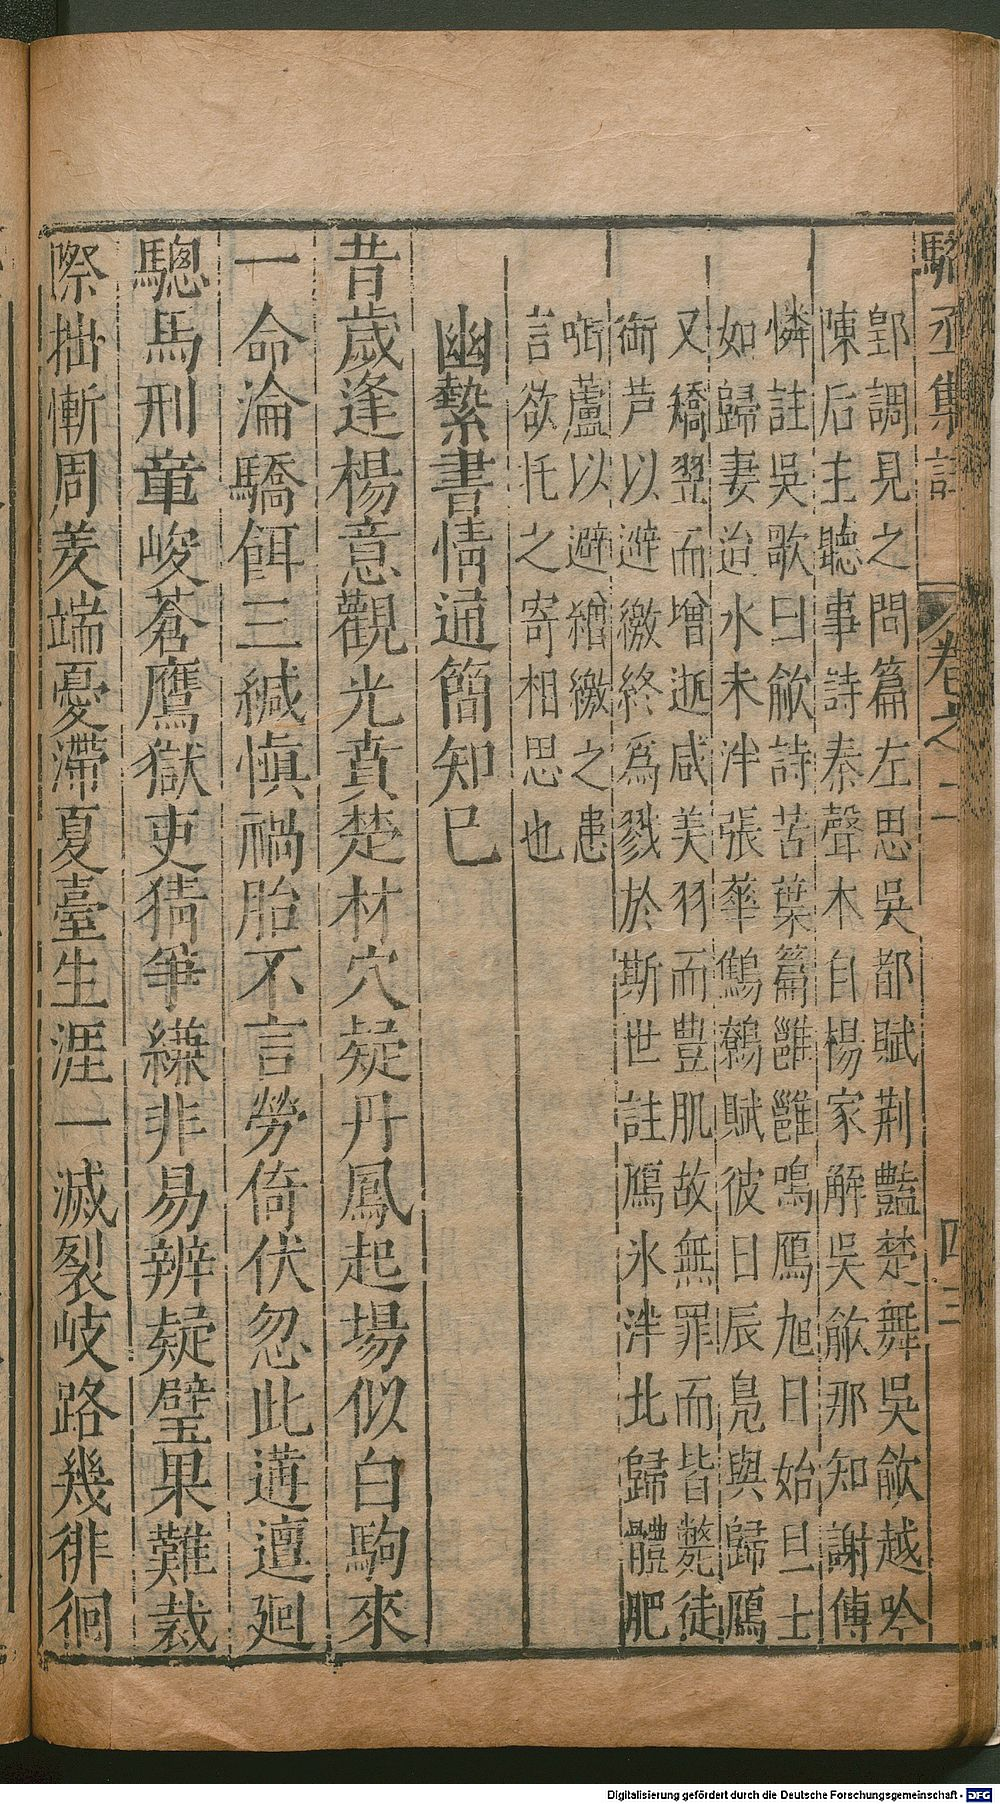 丞集註
卷之二
四三
郢調見之問篇左思吳都賦荆豔楚舞吳歈越吟
陳后主聽事詩秦聲本自楊家解吳歈那知謝傅
憐註吳歌曰歈詩苦葉篇雝雝鳴鴈旭日始旦士
如歸妻迨氷未泮張華鷦鷯賦彼日辰鳧與歸鴈
又矯翌而增逝咸美羽而豊肌故無罪而皆斃徒
銜芦以避繳終爲戮於斯世註鴈氷泮北歸體肥
啣蘆以避矰繳之患
言欲托之寄相思也
幽縶書情通簡知已
昔歲逢楊意觀光賁楚材穴疑丹鳳起場似白駒來
一命淪驕餌三緘愼禍胎不言勞倚伏忽此遘邅廻
驄馬刑章峻蒼鷹獄吏猜爭縑非易辨疑璧果難裁
際拙慚周羑端憂滯夏臺生涯一滅裂岐路幾徘徊
Digitalisierung gefördert durch die Deutsche Forschungsgemeinschaft - DFG